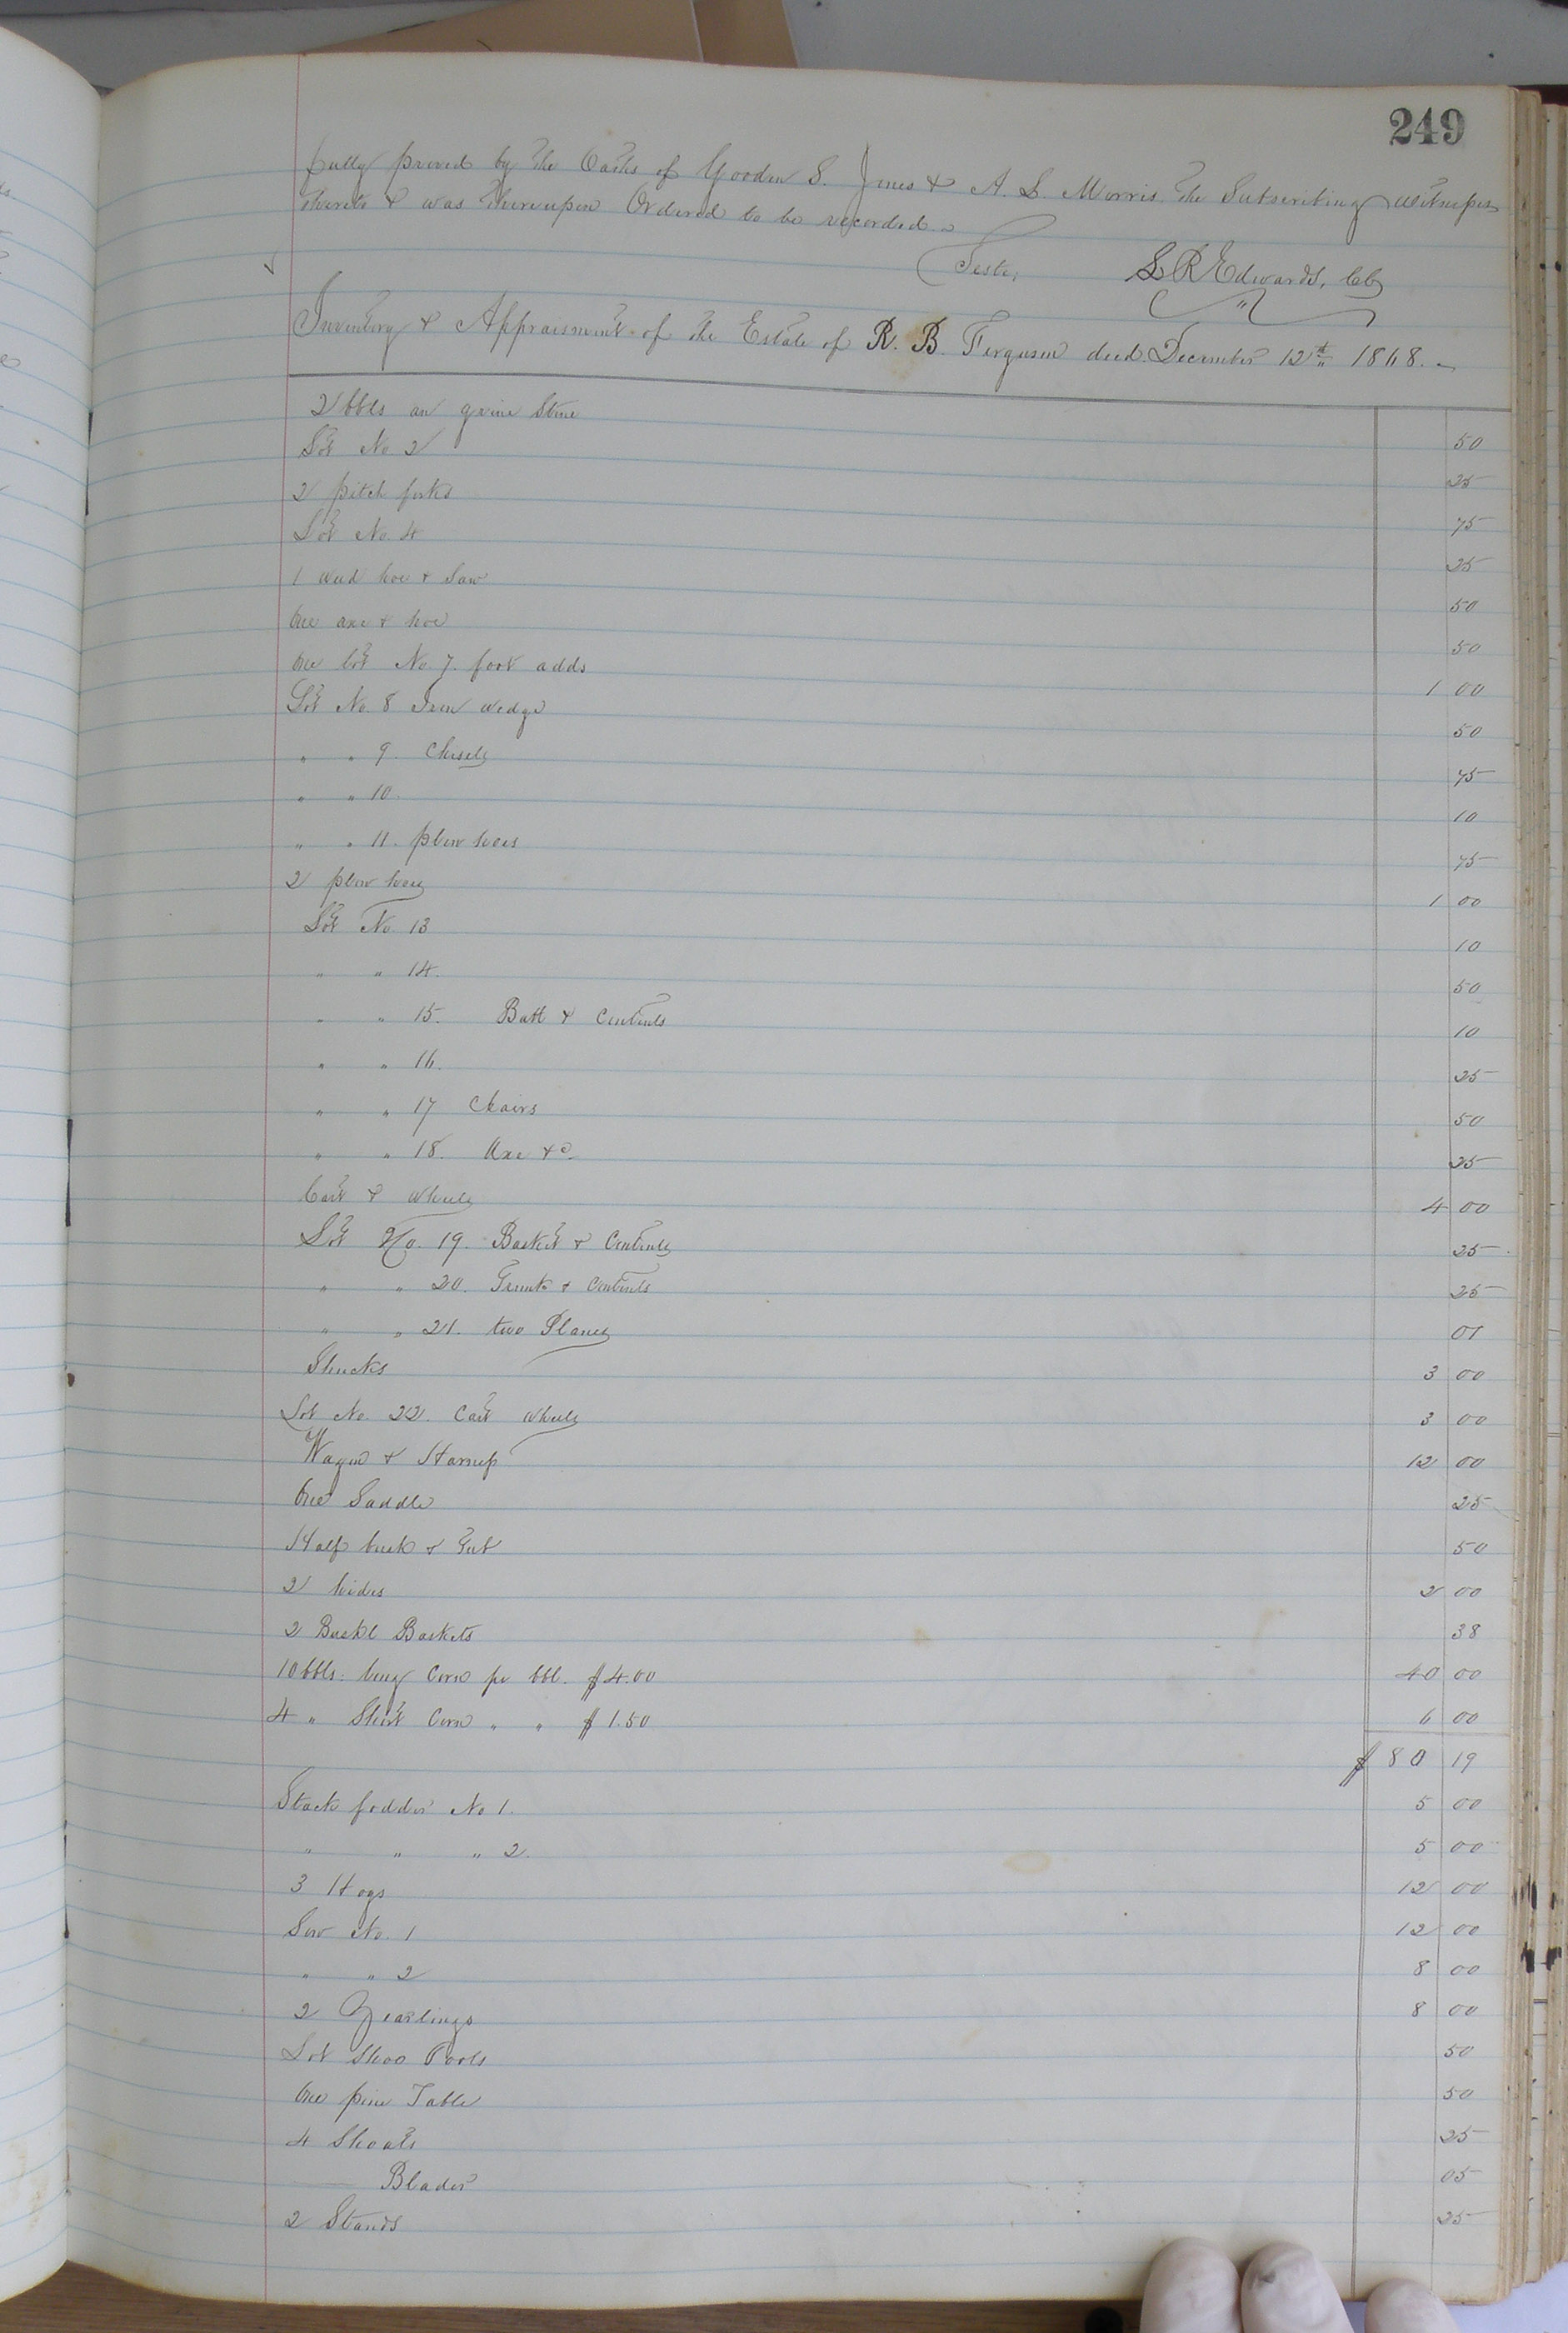 249
fully proved by the Oaths of Gooden S. Jones & A. L. Morris the Subscribing witnesses
thereto & was thereupon Ordered to be recorded.
Teste, L R Edwards, Clk
Inventory & Appraisment of the Estate of R. B. Ferguson decd. December 12th 1868.
2 bbls an grine Stone 50
Lot No 2 25
2 pitch forks 75
Lot No. 4 25
1 weed hoe & Saw 50
One axe & hoe 50
One lot No. 7. foot adds 1 00
Lot No. 8 Iron wedge 50
" " 9. Chisels 75
" " 10. 10
" " 11. plow hoes 75
2 plow hoes 1 00
Lot No. 13 10
" " 14. 50
" " 15. Batt & Contents 10
" " 16. 25
" " 17 Chairs 50
" " 18. Axe &c 25
Cart & Wheels 4 00
Lot No. 19. Basket & Contents 25
" " 20. Trunk & Contents 25
" " 21. two Planes 01
Shucks 3 00
Lot No. 22. Cart Wheels 3 00
Wagon & Harness 12 00
One Saddle 25
Half bush & 50
2 hides 2 00
2 Bushl Baskets 38
10 bbls. long Corn per bbl. $4.00 40 00
4 " Short Corn " " $1.50 6 00
$80 19
Stack fodder No 1. 5 00
" " " 2. 5 00
3 Hogs 12 00
Sow No. 1 12 00
" " 2 8 00
2 Yearlings 8 00
Lot Shoo Tools 50
One pine Table 50
4 Shoats 25
Blades 05
2 Stands 25